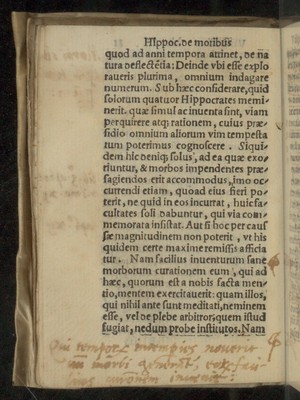 HIppoc. de moribus
quod ad anni tempora attinet, de na
tura deflectẽtia: Deinde vbi esse explo
raueris plurima, omnium indagare
numerum. Sub hæc considerare, quid
solorum quatuor Hippocrates memi-
nerit. quæ simul ac inuenta sint, viam
perquirere atq; rationem, cuius præ-
sidio omnium aliorum vim tempesta
tum poterimus cognoscere. Siqui-
dem hic deniq; solus, ad ea quæ exo-
riuntur, & morbos impendentes præ-
sagiendos erit accommodus, imo oc-
currendi etiam, quoad eius fieri po-
terit, ne quid in eos incurrat, huic fa-
cultates soli dabuntur, qui via com-
memorata insistat. Aut si hoc per cau-
sæ magnitudinem non poterit, vt his
quidem certe maxime remissis afficia
tur. Nam facilius inuenturum sane
morborum curationem eum, qui ad
hæc, quorum est a nobis facta men-
tio, mentem exercitauerit: quam illos,
qui nihil ante sunt meditati, neminem
esse, vel de plebe arbitror, quem istud
fugiat, nedum probe institutos. Nam
Qui tempora intempius noverit
morbi